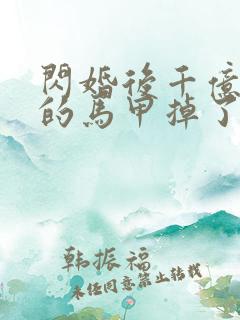 閃婚後千億
的馬甲掉了
韩振福
未任同意禁止转载